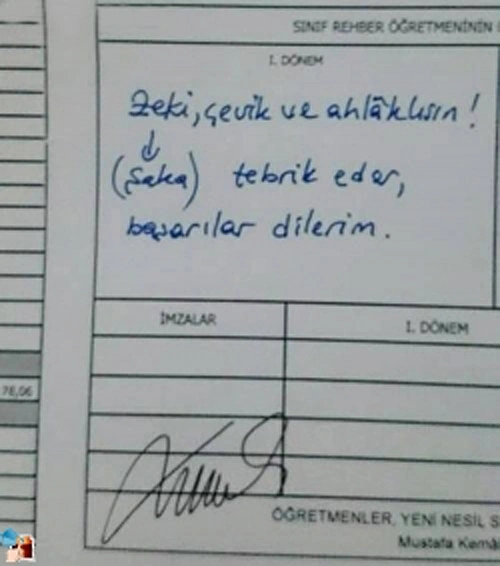 SINIF REHBER ÖĞRETMENİNİN
I. DÖNEM
Zeki, çevik ve ahlâklısın!
(Şaka) tebrik eder,
başarılar dilerim.
İMZALAR
I. DÖNEM
78,06
ÖĞRETMENLER, YENİ NESİL S
Mustafa Kemâl